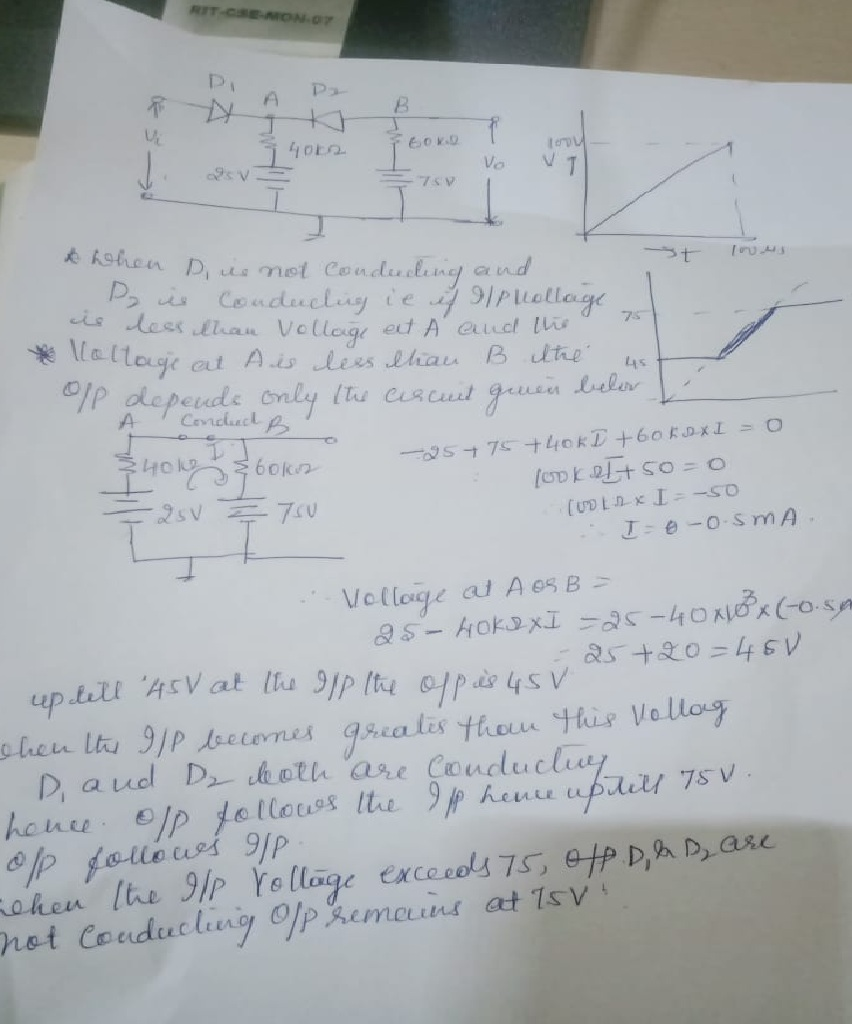 RIT-CSE-MON-07
D1 D2
A B
Vi 40kΩ 60kΩ Vo
25V 75V
100V
V ↑
→t 100μs
* When D1 is not conducting and
D2 is conducting ie if I/P Vollage
is less than Vollage at A and the
* Vollage at A is less than B the
O/P depends only the circuit given below
75
45
A Conduct B
I
40kΩ 60kΩ
25V 75V
-25 + 75 + 40kI + 60kΩ×I = 0
100kΩI + 50 = 0
100kΩ × I = -50
∴ I = -0.5mA.
∴ Vollage at A or B =
25 - 40kΩ×I = 25 - 40×10³×(-0.5m
= 25 + 20 = 45V
up till '45V at the I/P the O/P is 45V
when the I/P becomes greater than this Vollag
D1 and D2 both are conducting
hence. O/P follows the I/P hence uptill 75V.
O/P follows I/P.
when the I/P Vollage exceeds 75, D1 & D2 are
not conducting O/P remains at 75V.